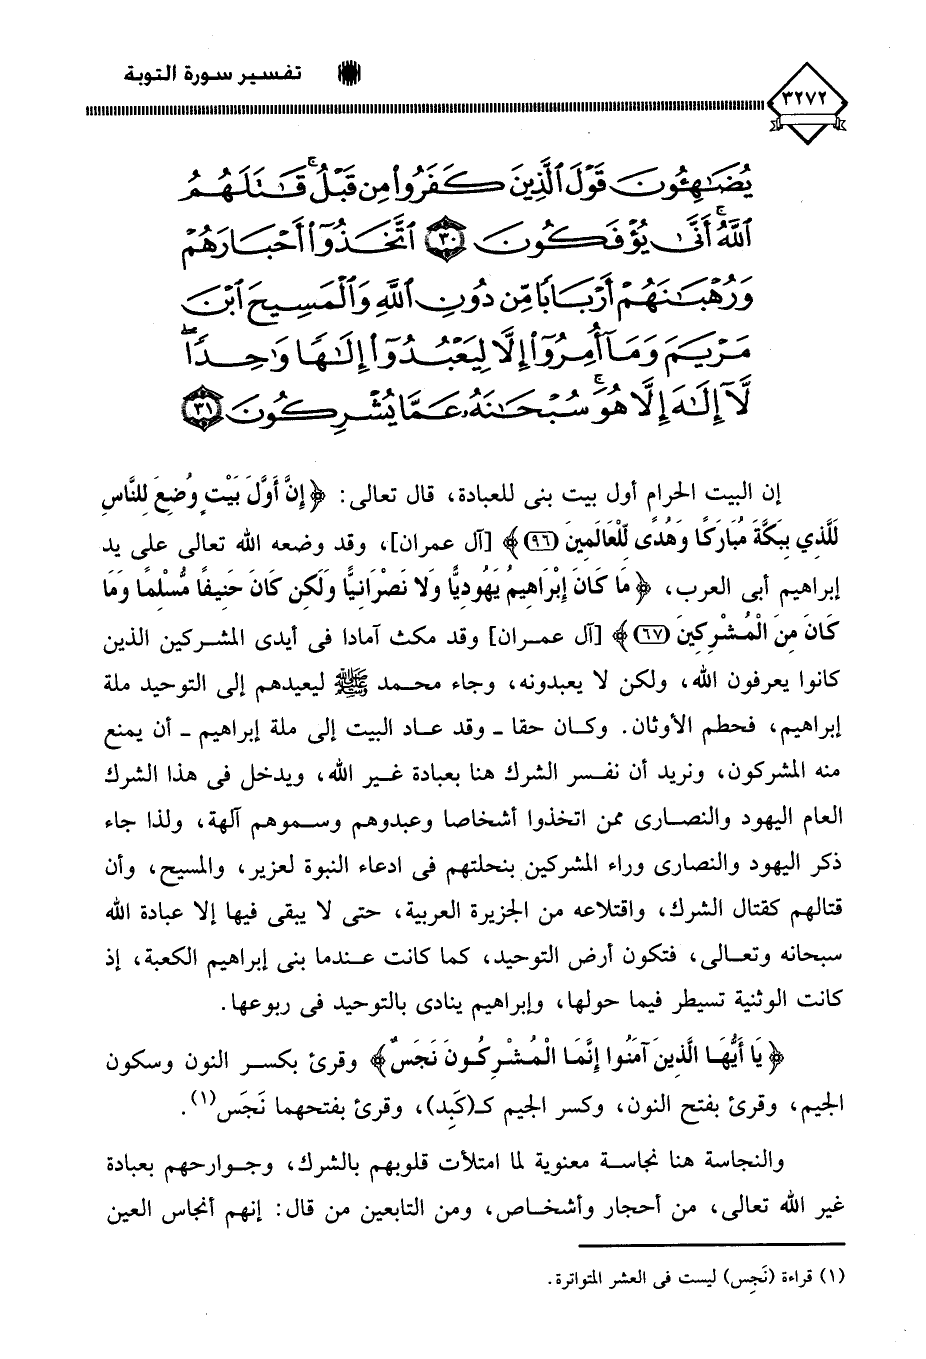 تفسير سورة التوبة
٣٢٧٢
يُضَٰهِـُٔونَ قَوْلَ ٱلَّذِينَ كَفَرُوا۟ مِن قَبْلُ ۚ قَٰتَلَهُمُ
ٱللَّهُ ۚ أَنَّىٰ يُؤْفَكُونَ ﴿٣٠﴾ ٱتَّخَذُوٓا۟ أَحْبَارَهُمْ
وَرُهْبَٰنَهُمْ أَرْبَابًا مِّن دُونِ ٱللَّهِ وَٱلْمَسِيحَ ٱبْنَ
مَرْيَمَ وَمَآ أُمِرُوٓا۟ إِلَّا لِيَعْبُدُوٓا۟ إِلَٰهًا وَٰحِدًا ۖ
لَّآ إِلَٰهَ إِلَّا هُوَ ۚ سُبْحَٰنَهُۥ عَمَّا يُشْرِكُونَ ﴿٣١﴾
إن البيت الحرام أول بيت بنى للعبادة، قال تعالى: ﴿إِنَّ أَوَّلَ بَيْتٍ وُضِعَ لِلنَّاسِ
لَلَّذِي بِبَكَّةَ مُبَارَكًا وَهُدًى لِّلْعَالَمِينَ (٩٦)﴾ [آل عمران]، وقد وضعه الله تعالى على يد
إبراهيم أبى العرب، ﴿مَا كَانَ إِبْرَاهِيمُ يَهُودِيًّا وَلا نَصْرَانِيًّا وَلَكِن كَانَ حَنِيفًا مُّسْلِمًا وَمَا
كَانَ مِنَ الْمُشْرِكِينَ (٦٧)﴾ [آل عمران] وقد مكث آمادا فى أيدى المشركين الذين
كانوا يعرفون الله، ولكن لا يعبدونه، وجاء محمد ﷺ ليعيدهم إلى التوحيد ملة
إبراهيم، فحطم الأوثان. وكان حقا ـ وقد عاد البيت إلى ملة إبراهيم ـ أن يمنع
منه المشركون، ونريد أن نفسر الشرك هنا بعبادة غير الله، ويدخل فى هذا الشرك
العام اليهود والنصارى ممن اتخذوا أشخاصا وعبدوهم وسموهم آلهة، ولذا جاء
ذكر اليهود والنصارى وراء المشركين بنحلتهم فى ادعاء النبوة لعزير، والمسيح، وأن
قتالهم كقتال الشرك، واقتلاعه من الجزيرة العربية، حتى لا يبقى فيها إلا عبادة الله
سبحانه وتعالى، فتكون أرض التوحيد، كما كانت عندما بنى إبراهيم الكعبة، إذ
كانت الوثنية تسيطر فيما حولها، وإبراهيم ينادى بالتوحيد فى ربوعها.
﴿يَا أَيُّهَا الَّذِينَ آمَنُوا إِنَّمَا الْمُشْرِكُونَ نَجَسٌ﴾ وقرئ بكسر النون وسكون
الجيم، وقرئ بفتح النون، وكسر الجيم كـ(كَبِد)، وقرئ بفتحهما نَجَس(١).
والنجاسة هنا نجاسة معنوية لما امتلأت قلوبهم بالشرك، وجوارحهم بعبادة
غير الله تعالى، من أحجار وأشخاص، ومن التابعين من قال: إنهم أنجاس العين
(١) قراءة (نَجِس) ليست فى العشر المتواترة.